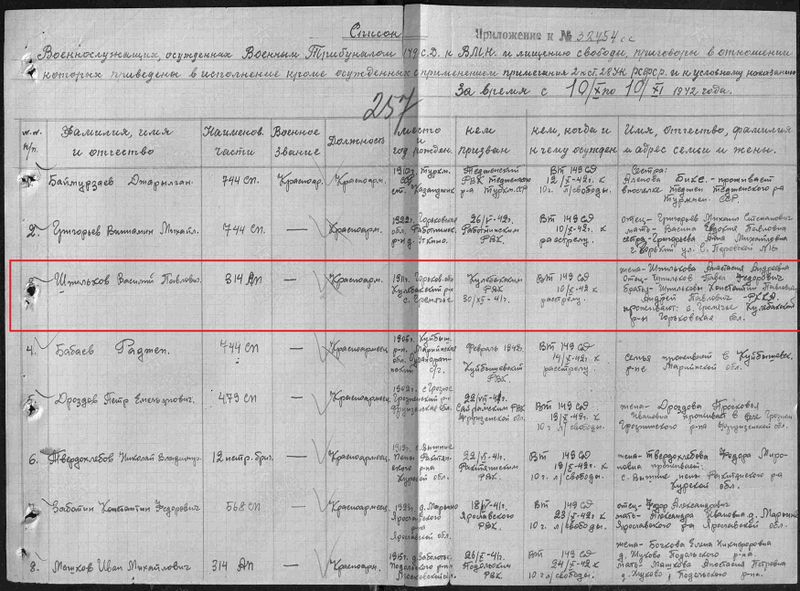 Список
Приложение к № 32454сс
Военнослужащих, осужденных Военным Трибуналом 149 с.д. к В.М.Н. и лишению свободы, приговоры в отношении
которых приведены в исполнение кроме осужденных с применением примечания 2 к ст. 28 УК РСФСР. и к условному наказанию
За время с 10/X по 10/XI 1942 года.
257
№.№. п/п. Фамилия, имя и отчество Наименов. части Военное Звание Должность Место и год рожден. кем призван кем, когда и к чему осужден Имя, отчество, фамилия и адрес семьи и жены.
1. Баймурзаев Джарылган. 744 СП. Красноар. Красноарм. 1910г. Туркм. ССР Казанджик р-на Туркм. ССР Тедженский РВК Тедженского ВТ 149 СД 12/X-42г. к 10 г. л/свободы. Сестра: Аленова Бике. - проживает в поселке Теджен Тедженского р-на Туркмен. ССР.
2. Григорьев Вениамин Михайл. 744 СП. — Красноарм. 1922г. Горьковская обл. Работкин. р-н 26/IV-42г. Работкинским РВК. ВТ 149 СД 10/X-42г. к расстрелу. отец - Григорьев Михаил Степанович мать - Васина Евдокия Павловна сестра - Григорьева Анна Михайловна г. Горький ул. С. Перовской
3. Шпильков Василий Павлович. 314 АП — Красноарм. 1911г. Горьков. обл Кулебакский р-н с. Гремячье Кулебакским РВК 30/XII-41г. ВТ 149 СД 10/X-42г. к расстрелу. жена - Шпилькова Анастасия Андреевна отец - Шпильков Павел Федорович братья - Шпильковы Константин Павлович Андрей Павлович - РККА. проживают: с. Гремячье Кулебакский р-н Горьковская обл.
4. Бабаев Раджеп. 744 СП — Красноармеец 1906г. Куйбыш. р-н Марыйская Февраль 1942г. Куйбышевский РВК. ВТ 149 СД 14/X-42г. к расстрелу. Семья проживает в Куйбышевск. р-не Марийской обл.
5. Дроздов Петр Емельянович. 479 СП — Красноармеец 1902г. г Грозное Грозненский р-н 22/VII-41г. РВК ВТ 149 СД 19/X-42г. к 10 г л/свободы. жена - Дроздова Просковья Ивановна проживает в
6. Твердохлебов Николай Владимир. 12 истр. бриг. — Красноармеец. 1919г. с. Вышние Пены Курской обл. 22/VI-41г. Ракитянским РВК. ВТ 149 СД 19/X-42г. к 10 г. л/свободы. жена - Твердохлебова Федора Мироновна проживает: с. Вышние пены Ракитянского р-на Курской обл.
7. Заботин Константин Федорович 568 СП — Красноармеец. 1923г. д. Марьино Ярославского р-на Ярославской обл. 18/IV-41г. Ярославского РВК. ВТ 149 СД 23/X-42г. к 10 г. л/свободы. отец - Федор Александрович мать - Александра Ивановна д. Марьино Ярославского р-на Ярославской обл.
8. Машков Иван Михайлович 314 АП — Красноармеец. 1915г. Подольского р-на Московской 26/X-41г. Подольским РВК. ВТ 149 СД 24/X-42г к 10 г л/свободы. жена - Бочкова Елена Никифоровна д. Жуково Подольского р-на. мать - Машкова Анастасия Петровна д. Жуково, Подольского р-на.